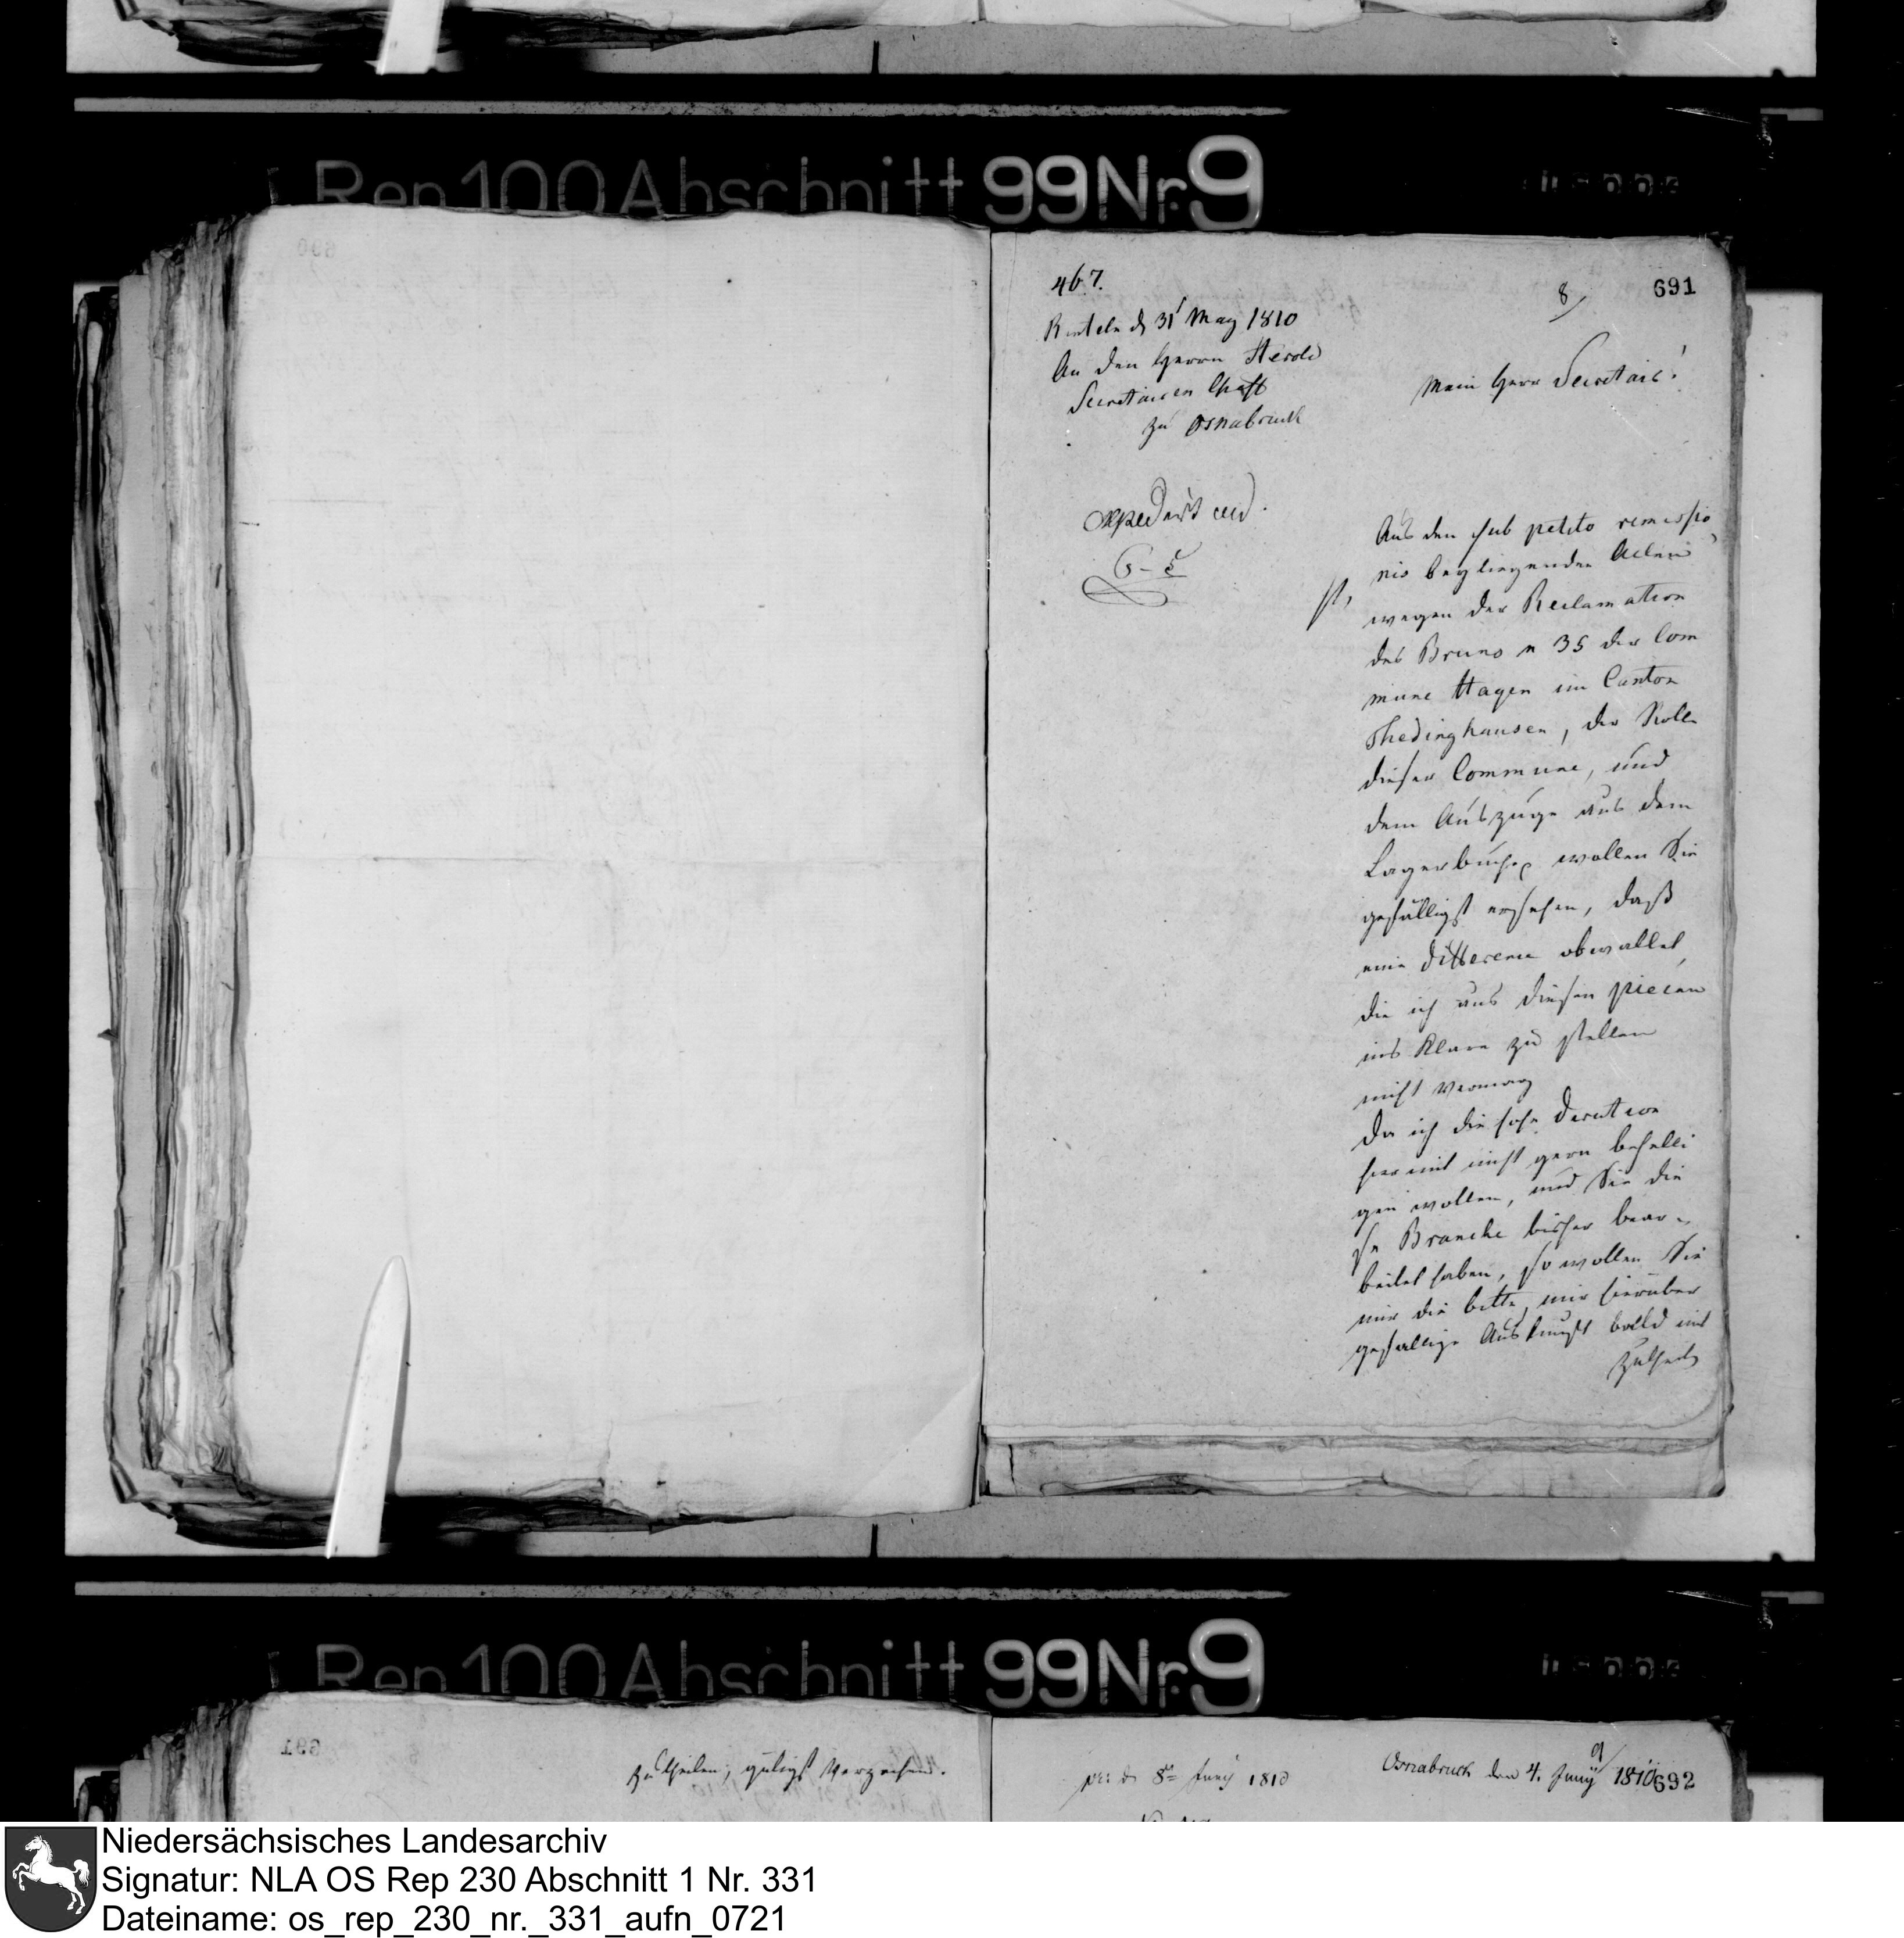 Rep 100 Abschnitt 99 Nr. 9
467.
8/
691
Rinteln d 31t May 1810
An den Herrn Herold
Secretairen Chaft
zu Osnabruck
Mein Herr Secretair!
expedirt eod.
Aus den sub petito remissio
nis beyliegenden Acten
wegen der Reclamation
des Bruno n 35 der Com
mune Hagen im Canton
Thedinghausen, der Rolle
dieser Commune, und
dem Auszuge aus dem
Lagerbuche wollen Sie
gefälligst ersehen, daß
eine differenz obwaltet,
die ich aus diesen piecen
ins Klare zu stellen
nicht vermag
Da ich die hohe Direction
hiermit nicht gern behelli
gen wollen, und Sie die
se Branche bisher bear-
beitet haben, so wollen Sie
mir die bitte, mir hierüber
gefällige Auskunft bald mit
zutheil
Rep 100 Abschnitt 99 Nr. 9
691
zutheilen, gütigst verzeihen.
pr: d 8t Juny 1810
Osnabruck den 4. Juny 1810
9/
692
Niedersächsisches Landesarchiv
Signatur: NLA OS Rep 230 Abschnitt 1 Nr. 331
Dateiname: os_rep_230_nr._331_aufn_0721